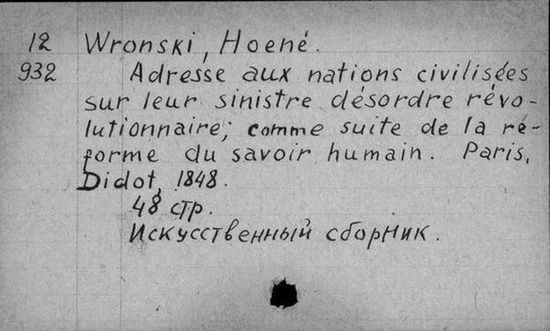 12 Wronski, Hoené.
932 Adresse aux nations civilisées
sur leur sinistre désordre révo-
lutionnaire; comme suite de la ré-
forme du savoir humain. Paris,
Didot, 1848.
48 стр.
Искусственный сборник.